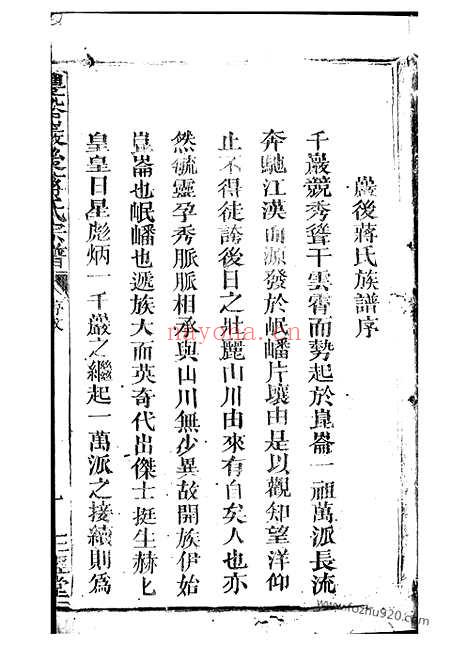 巖後蔣氏族譜序
千巖競秀聳干雲霄而勢起於崑崙一祖萬派長流
奔馳江漢而源發於岷嶓片壤由是以觀知望洋仰
止不得徒誇後日之壯麗山川由來有自矣人也亦
然毓靈孕秀脈脈相承與山川無少異故開族伊始
崑崙也岷嶓也遞族大而英奇代出傑士挺生赫匕
皇皇日星彪炳一千巖之繼起一萬派之接續則為
巖後蔣氏宗譜
序文
一
三徑堂
miyona.cn
www.fozhu920.com